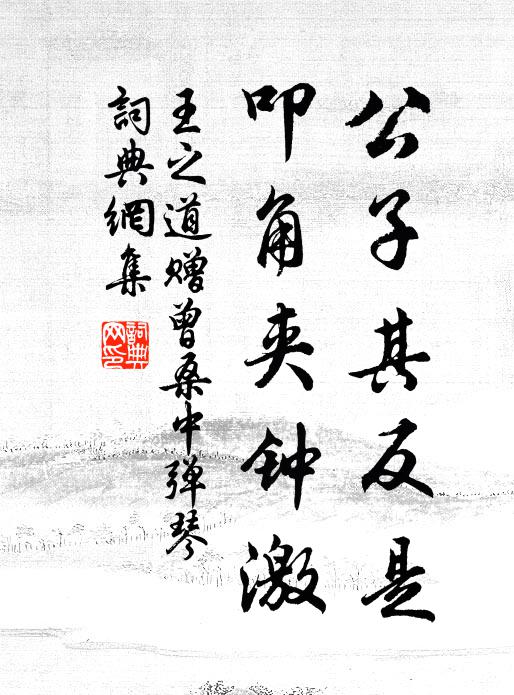 公子其反是
叩角夹钟激
王之道赠曾桑中弹琴
詞典網集
詞典网印